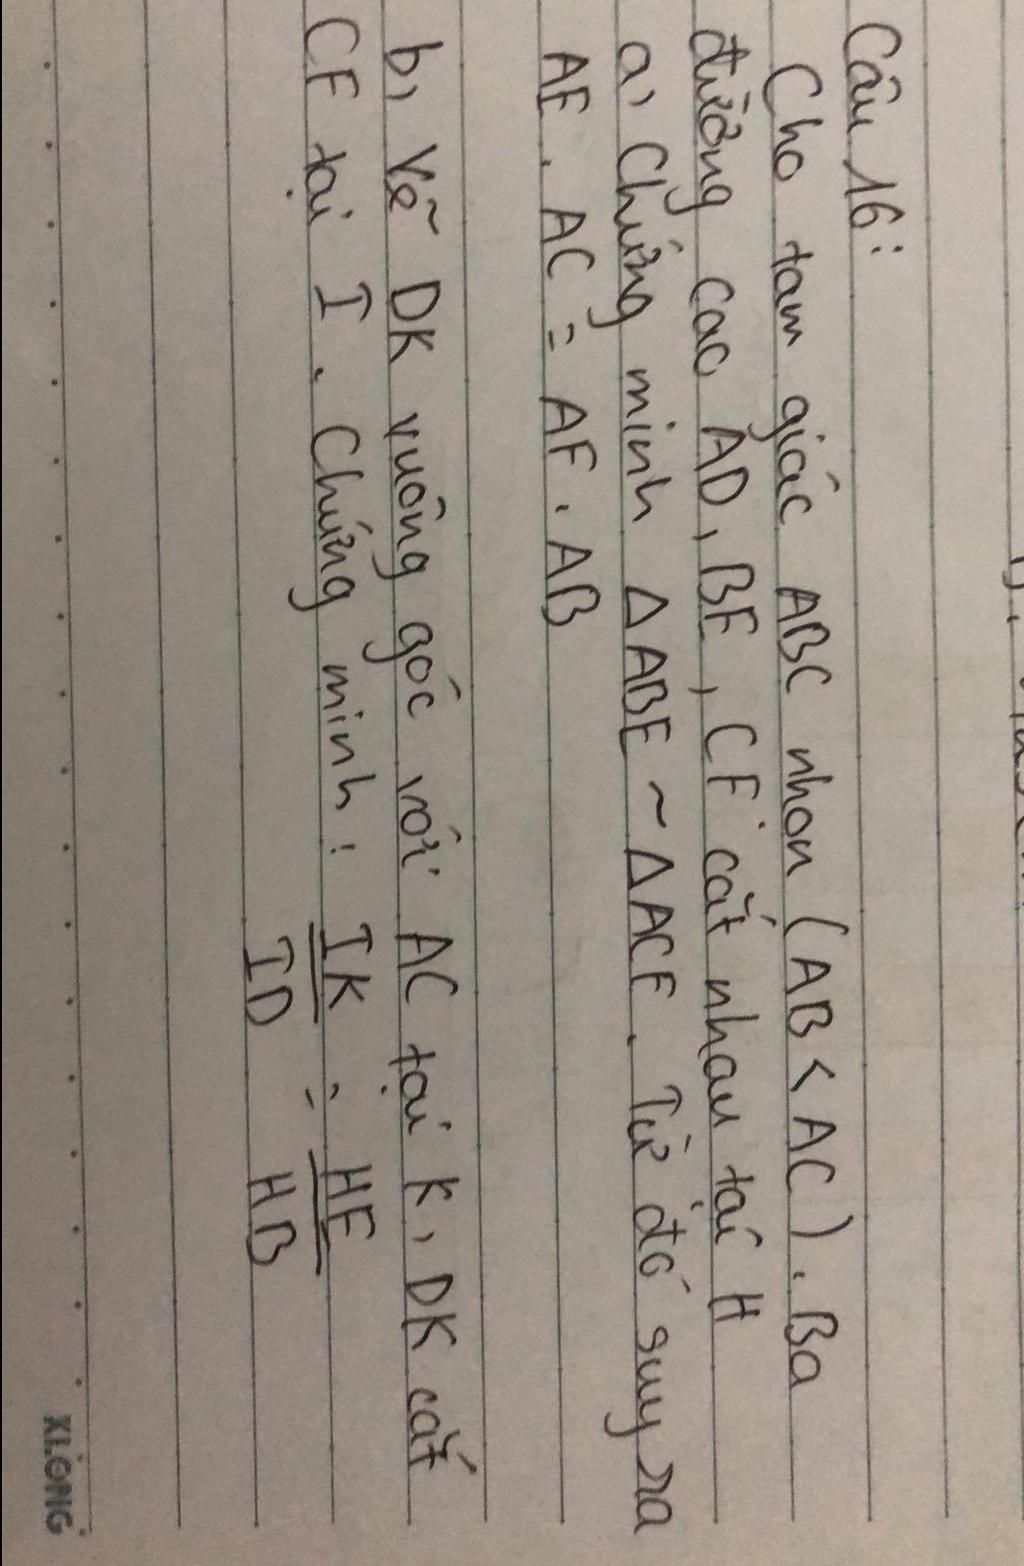 Câu 16:
Cho tam giác ABC nhọn (AB < AC). Ba
đường cao AD, BE, CF cắt nhau tại H
a, Chứng minh Δ ABE ~ ΔACF. Từ đó suy ra
AE. AC = AF. AB
b, Vẽ DK vuông góc với AC tại K, DK cắt
CF tại I. Chứng minh: IK/ID = HE/HB
XLONG